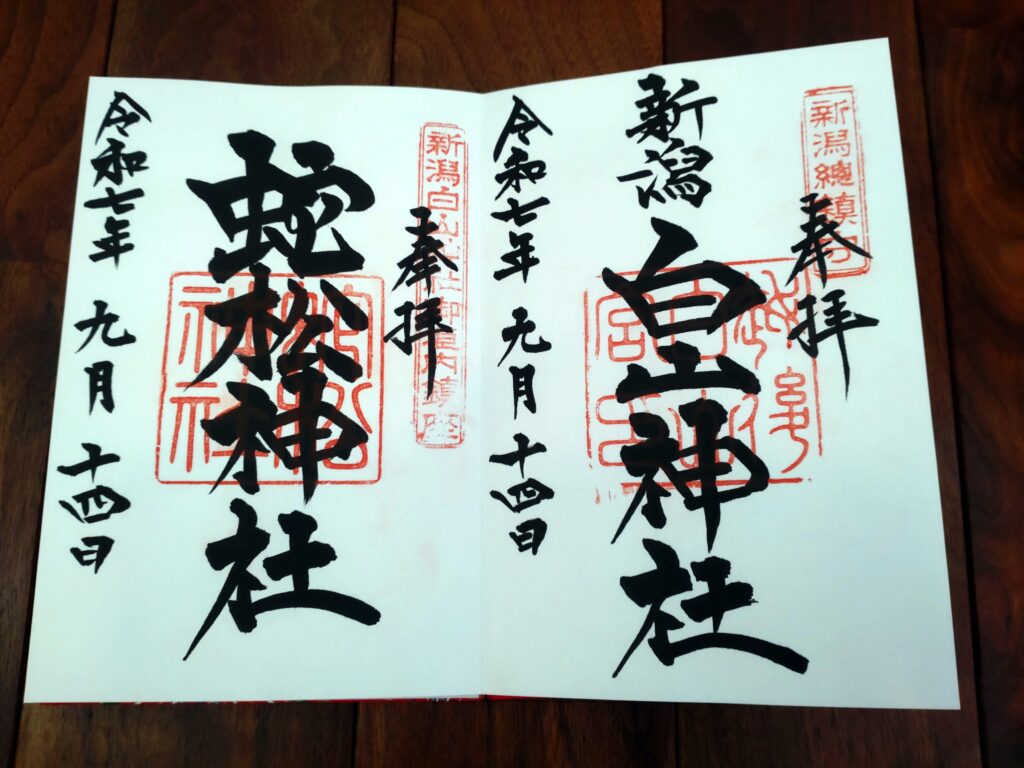 新潟總鎮守
奉拝
新潟
白山神社
令和七年 九月 十四日
新潟白山神社御内鎮座
奉拝
蛇松神社
蛇松
神社
令和七年 九月 十四日